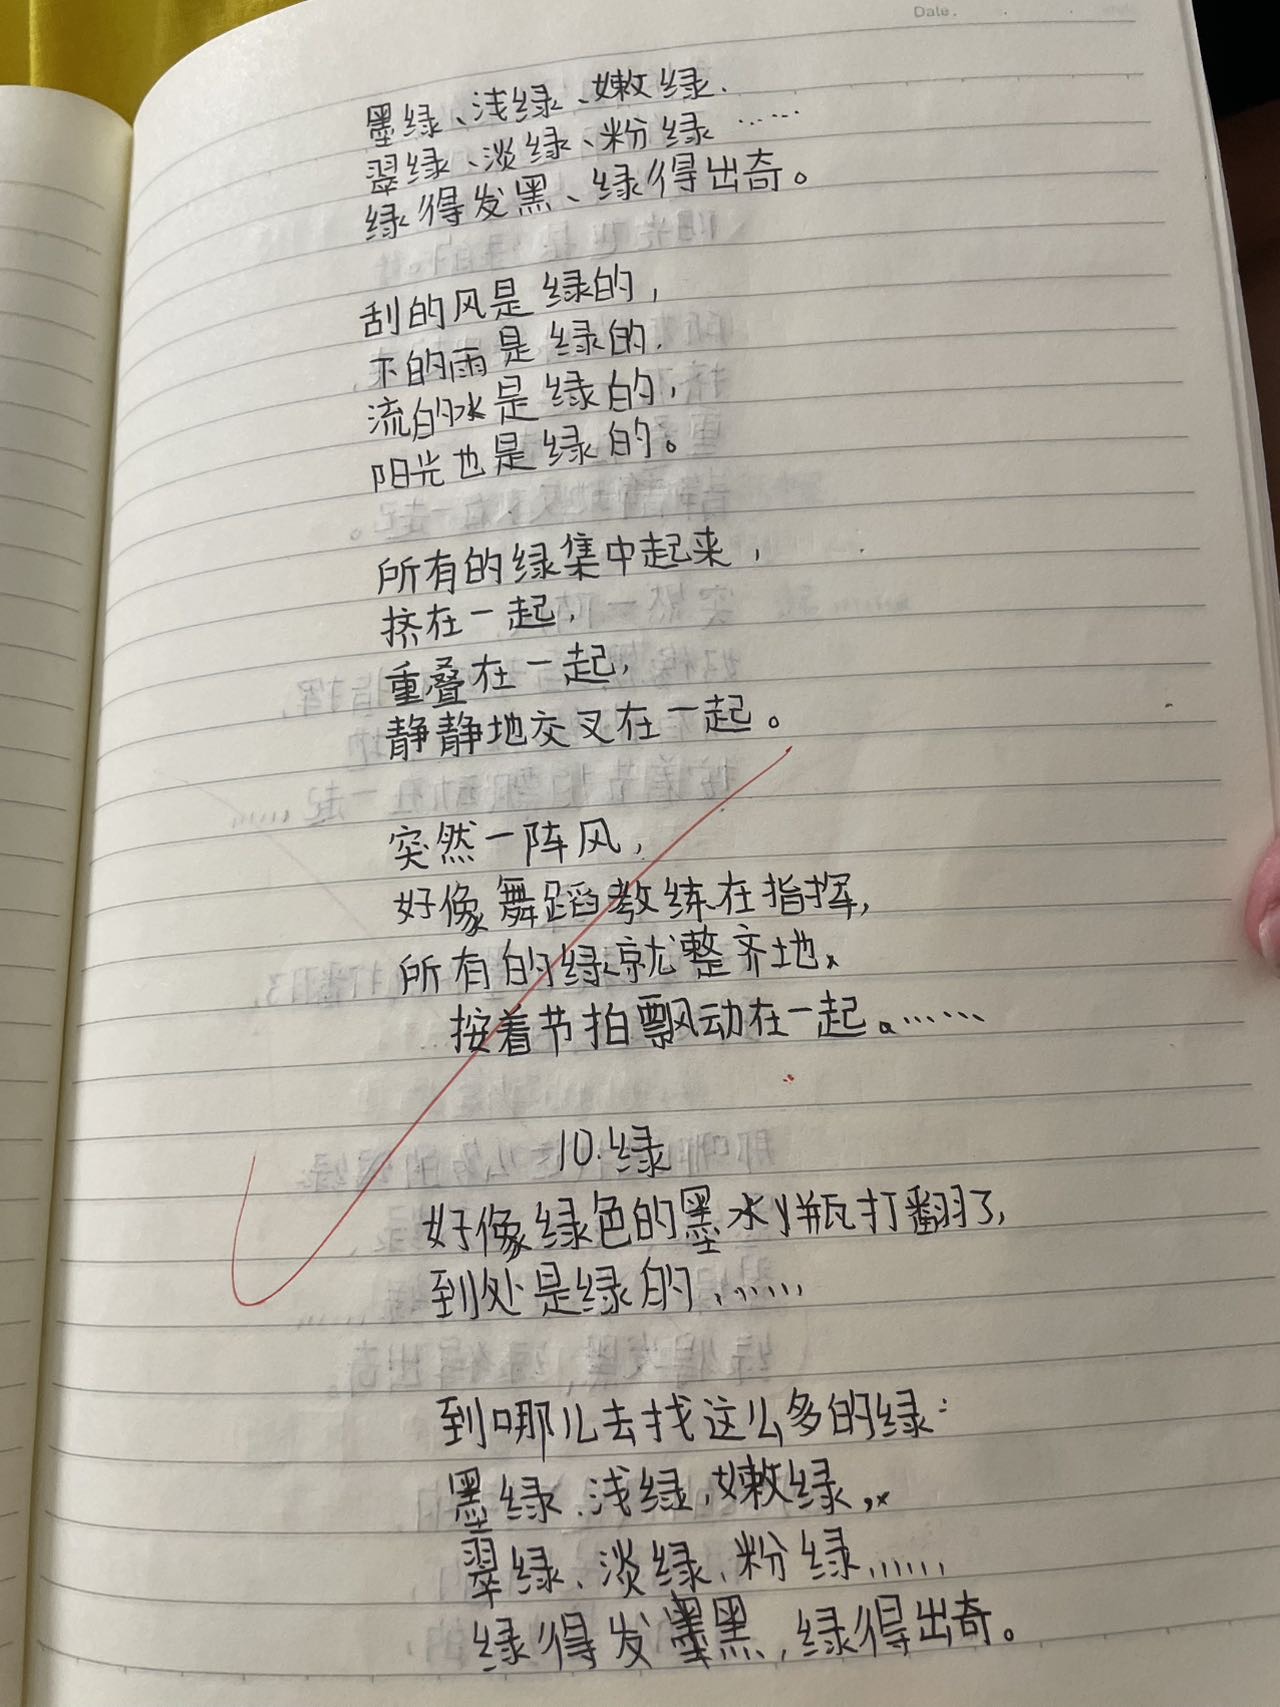 Date.
墨绿、浅绿、嫩绿.
翠绿、淡绿、粉绿……
绿得发黑、绿得出奇。
刮的风是绿的，
下的雨是绿的，
流的水是绿的，
阳光也是绿的。
所有的绿集中起来，
挤在一起，
重叠在一起，
静静地交叉在一起。
突然一阵风，
好像舞蹈教练在指挥，
所有的绿就整齐地
按着节拍飘动在一起。……
10.绿
好像绿色的墨水瓶打翻了，
到处是绿的，……
到哪儿去找这么多的绿：
墨绿、浅绿、嫩绿，
翠绿、淡绿、粉绿……
绿得发黑，绿得出奇。